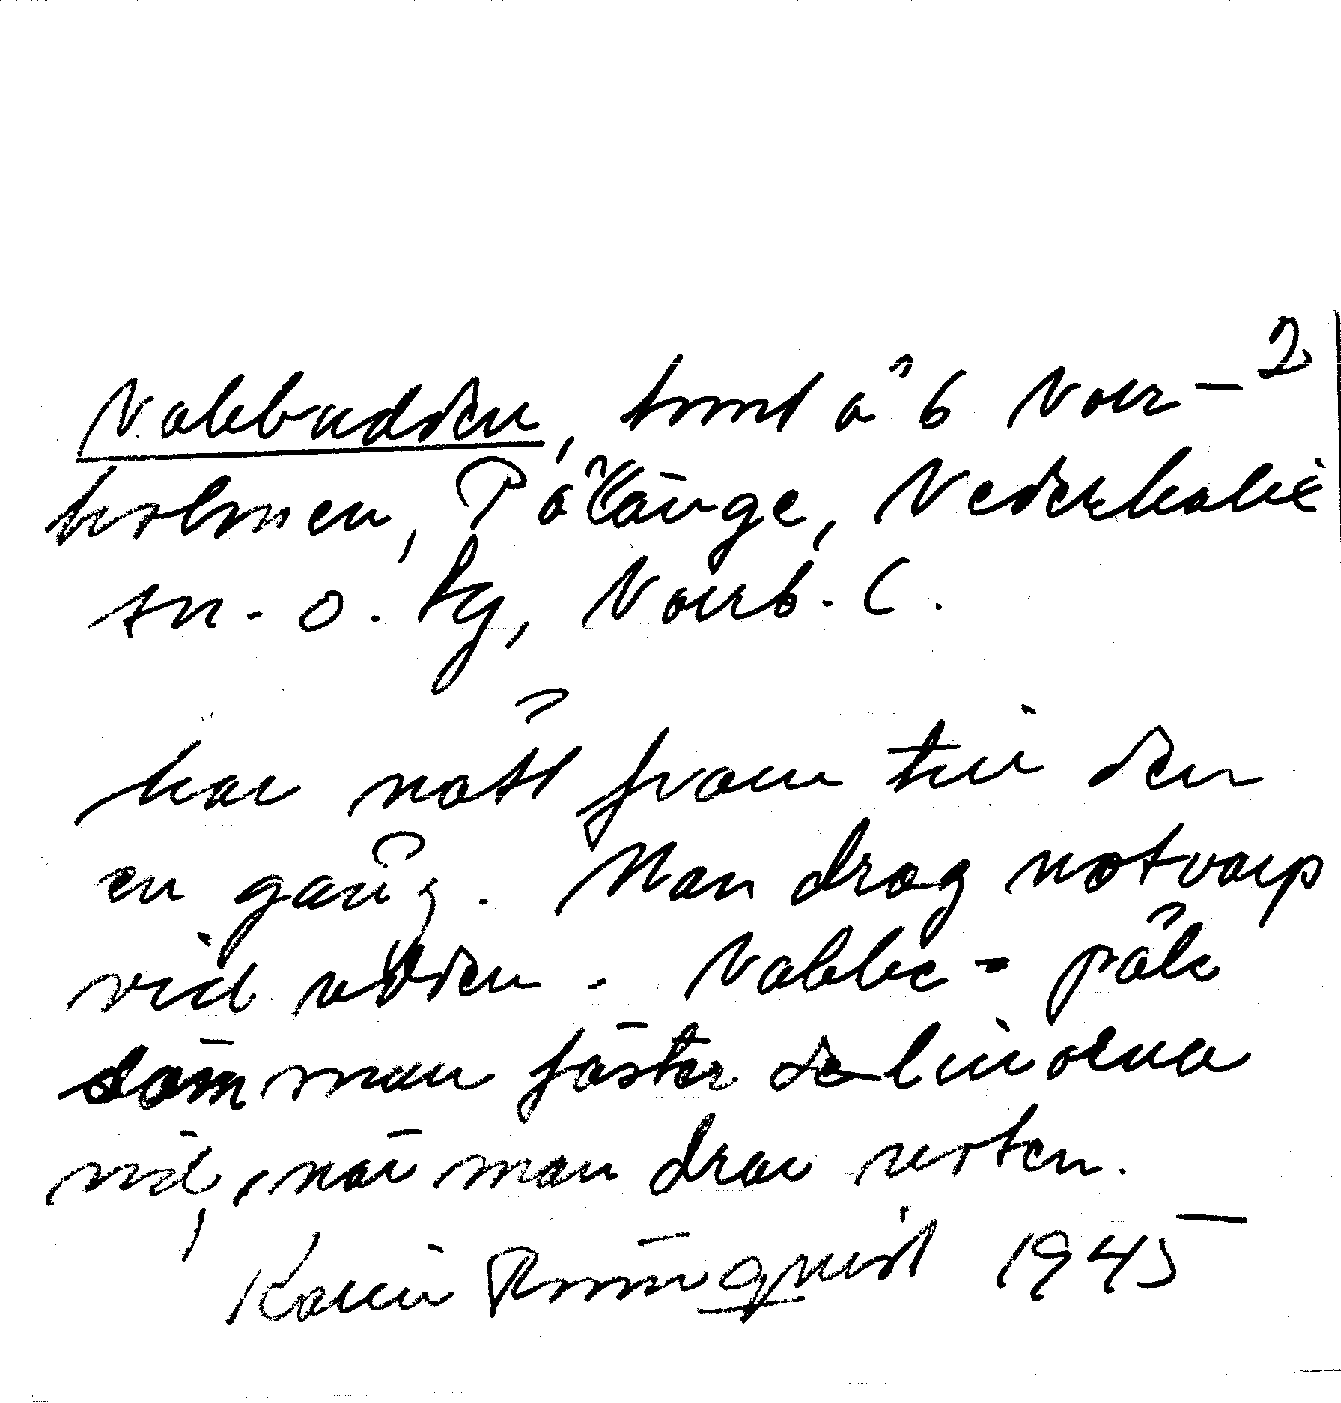 2
Nabbudden, tomt å 6 Norr-
holmen, Pålänge, Nederkalix
sn. o. kg, Norrb. l.
har nått fram till den
en gång. Man drog notvarp
vid udden. Nabbe = påle
som man fäster de linorna
vid, när man drar noten.
Karin Rönnqvist 1945